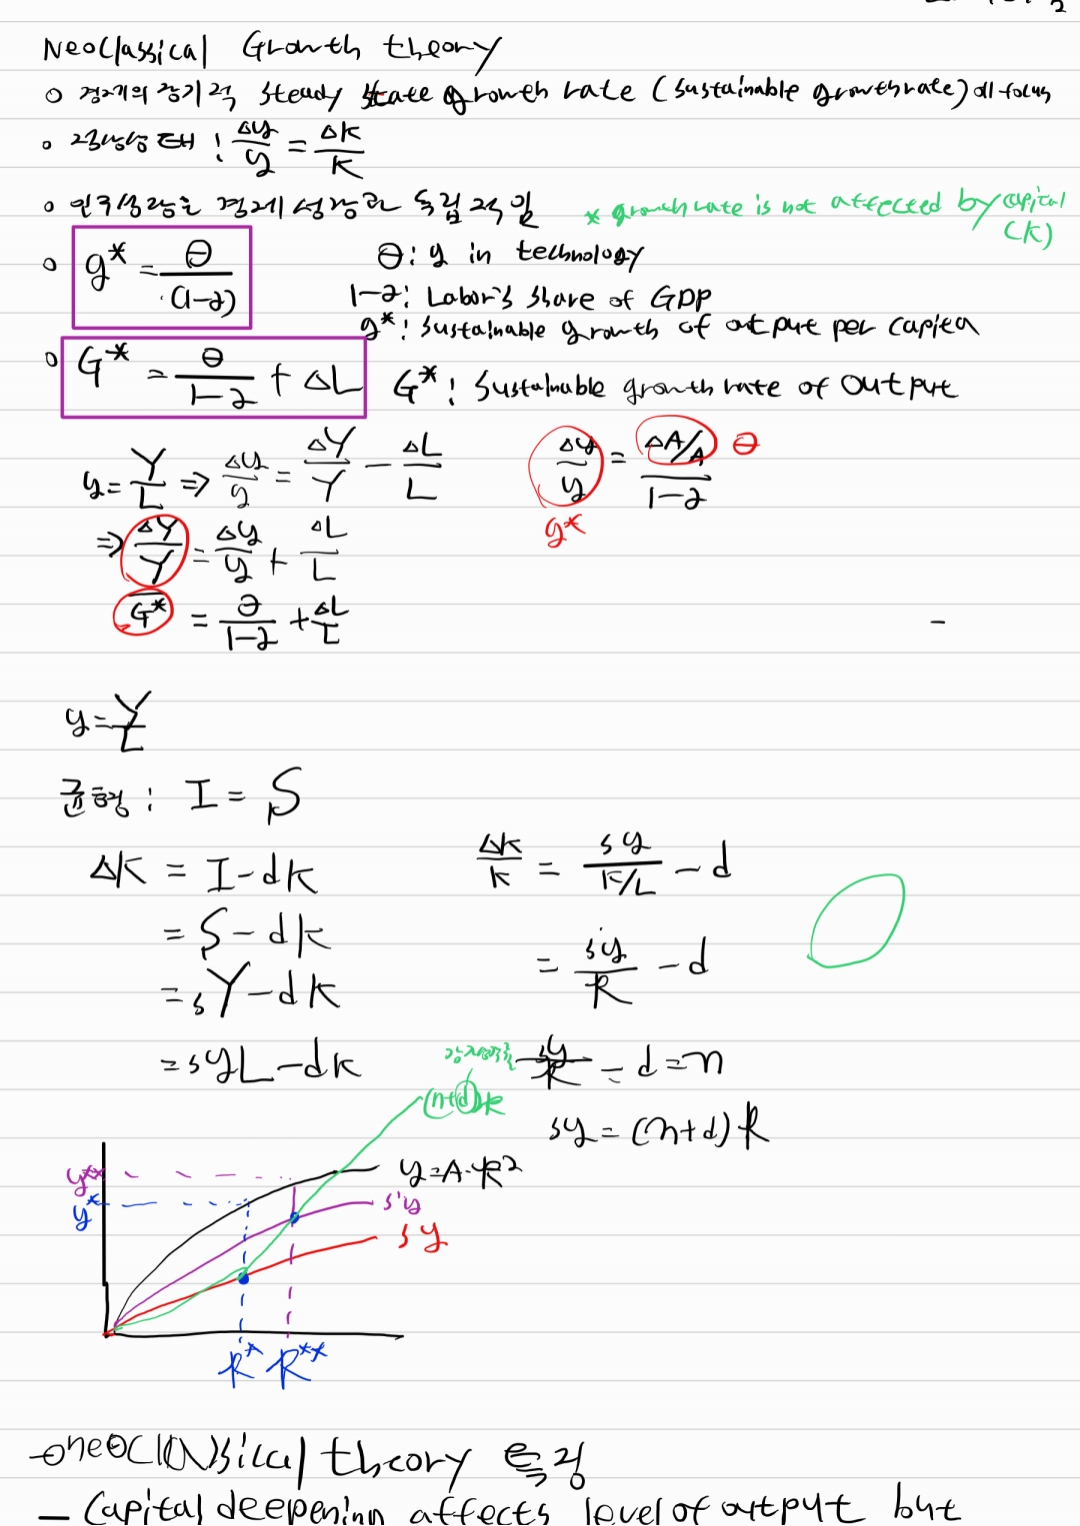 Neoclassical Growth theory
○ 경제의 장기적 steady state growth rate (sustainable growth rate)에 focus
○ 정상상태 : Δy/y = Δk/k
○ 인구성장은 경제성장과 독립적임 * growth rate is not affected by capital (k)
○ g* = θ/(1-α) θ: g in technology
1-α: Labor's share of GDP
g*: sustainable growth of output per capita
○ G* = θ/1-α + ΔL G*: sustainable growth rate of output
y = Y/L ⇒ Δy/y = ΔY/Y - ΔL/L Δy/y = ΔA/A/1-α θ
g*
⇒ ΔY/Y = Δy/y + ΔL/L
G* = θ/1-α + ΔL/L
y = Y/L
균형 : I = S
ΔK = I - dK Δk/k = sy/K/L - d
= S - dK = sy/k - d
= sY - dK
= syL - dK sy/k - d = n
(n+d)k sy = (n+d)k
y = A·kα
y**
y*
s'y
sy
k* k**
neoclassical theory 특징
- Capital deepening affects level of output but